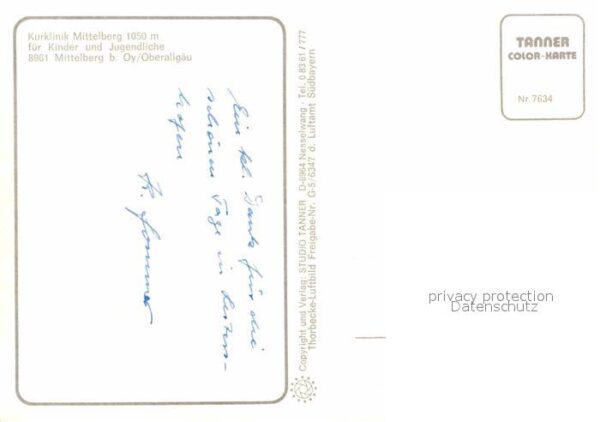 Kurklinik Mittelberg 1050 m
für Kinder und Jugendliche
8961 Mittelberg b. Oy/Oberallgäu
Ein kl. Dank für die
schönen Tage in
hofen
K. Sommer
Copyright und Verlag: STUDIO TANNER D-8964 Nesselwang · Tel. 0 83 61 / 777
Thorbecke-Luftbild Freigabe-Nr. G-5/6347 d. Luftamt Südbayern
TANNER
COLOR-KARTE
Nr. 7634
privacy protection
Datenschutz